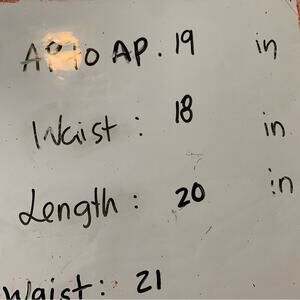 AP to AP. 19 in
Waist: 18 in
Length: 20 in
Waist: 21